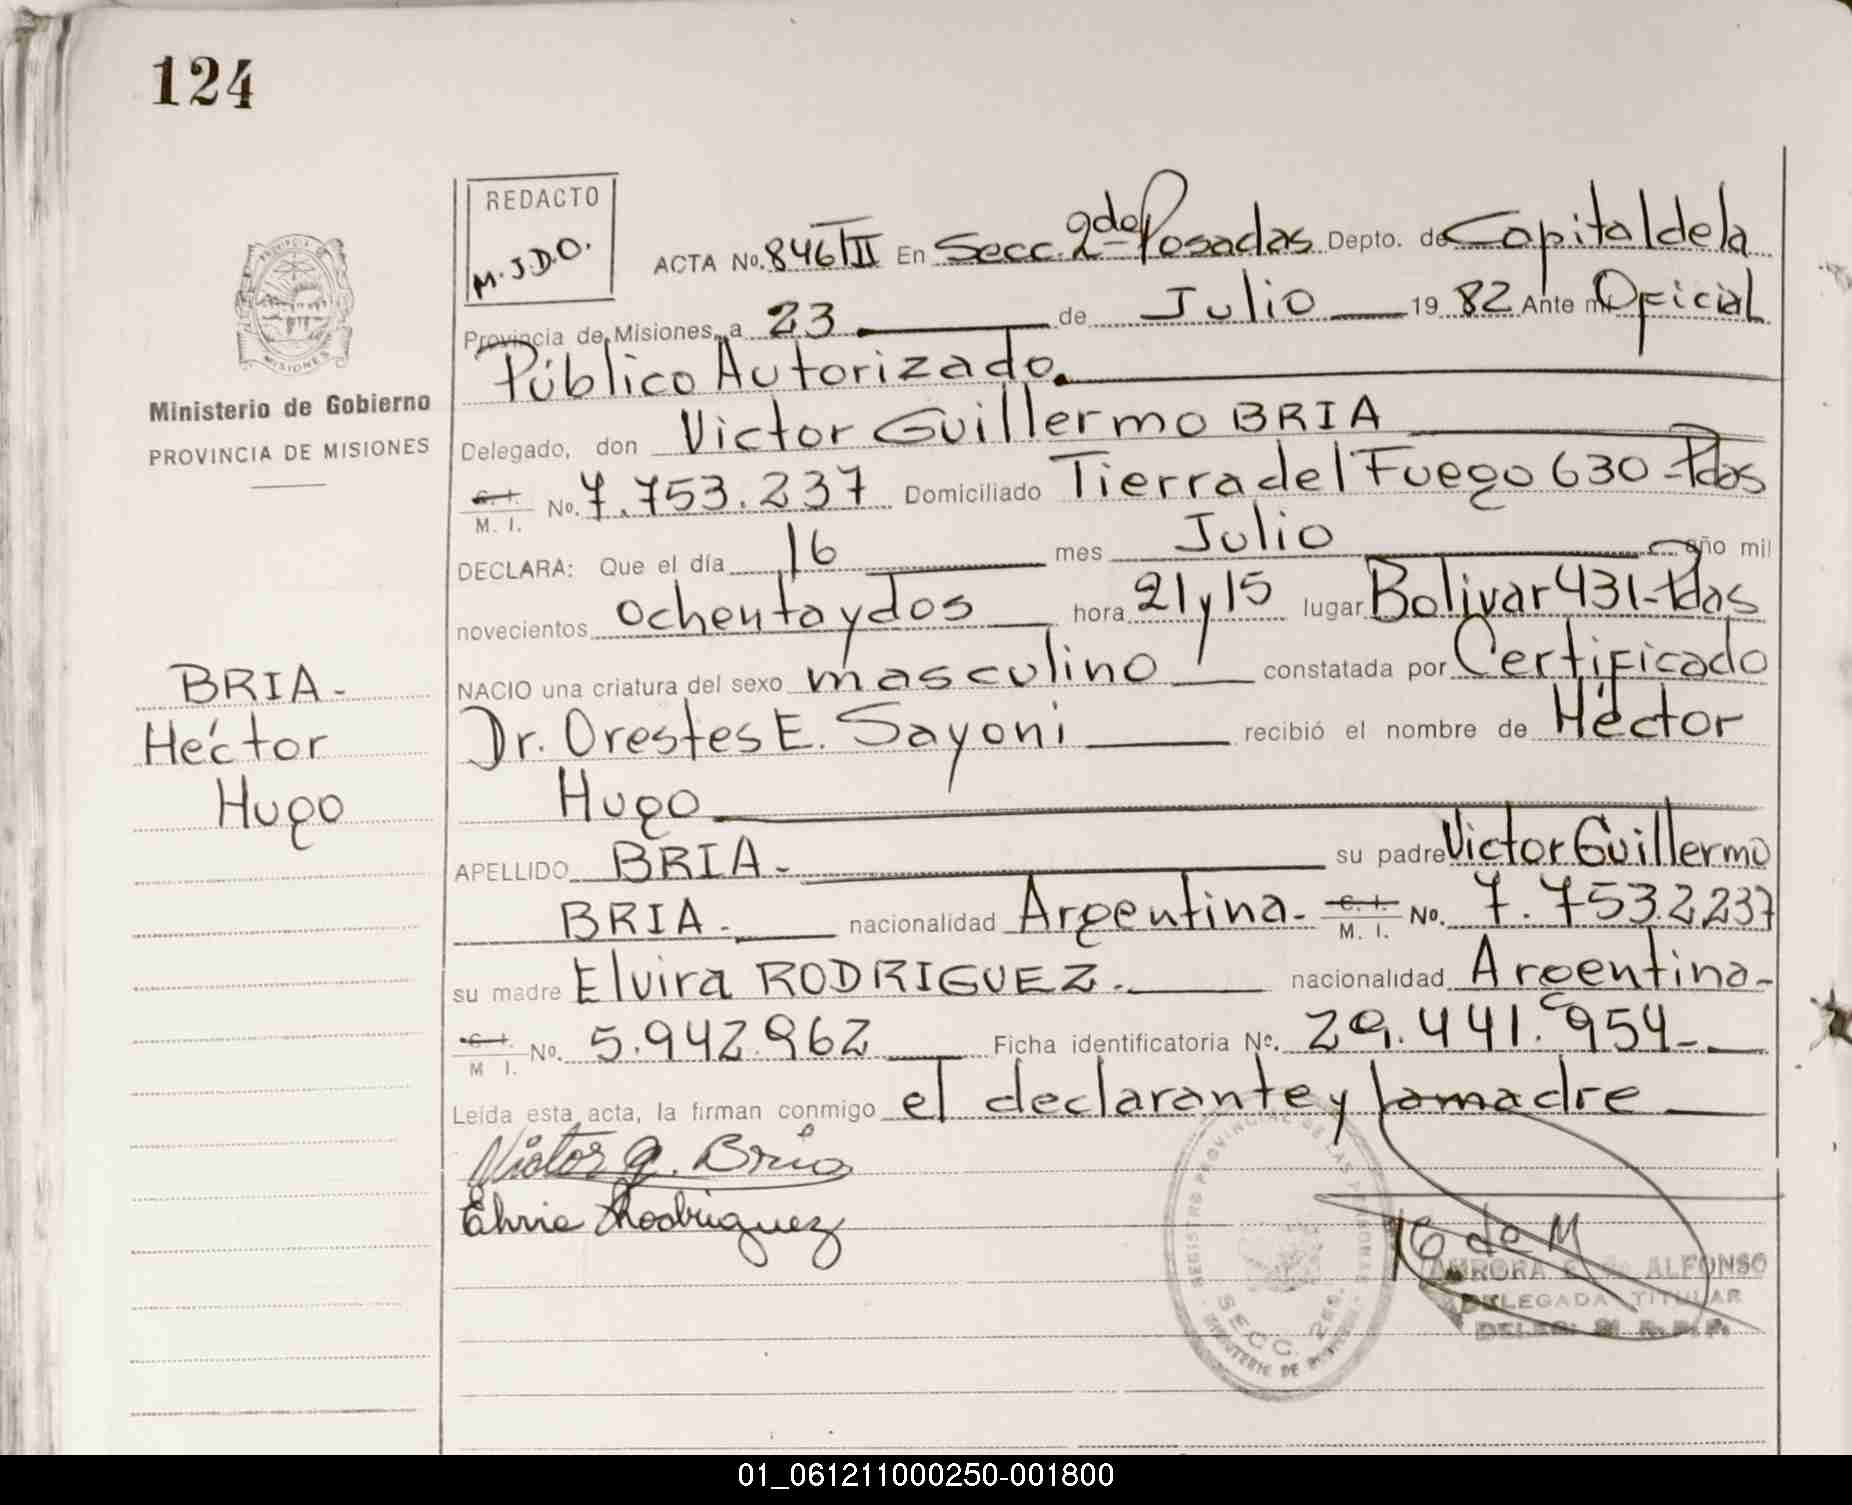 124
REDACTO
M.J.D.O.
ACTA No. 846/II En Secc. 2da Posadas Depto. de Capital de la
Provincia de Misiones, a 23 de Julio 19 82 Ante mi Oficial
Público Autorizado.
Delegado, don Victor Guillermo BRIA
C. I. M. I. No. 7.753.237 Domiciliado Tierra del Fuego 630 - Pdas
DECLARA: Que el día 16 mes Julio año mil
novecientos ochenta y dos hora 21 y 15 lugar Bolivar 431 - Pdas
NACIO una criatura del sexo masculino constatada por Certificado
Dr. Orestes E. Sayoni recibió el nombre de Héctor
Hugo
APELLIDO BRIA - su padre Victor Guillermo
BRIA. nacionalidad Argentina - C. I. M. I. No. 7.753.2237
su madre Elvira RODRIGUEZ. nacionalidad Argentina -
C. I. M I. No. 5.942.962 Ficha identificatoria No. 29.441.954 -
Leída esta acta, la firman conmigo el declarante y la madre
Victor g. Bria
Elvira Rodriguez
PROVINCIA DE
MISIONES
Ministerio de Gobierno
PROVINCIA DE MISIONES
BRIA -
Héctor
Hugo
REGISTRO PROVINCIAL DE LAS PERSONAS
SECC. 2da.
AURORA ALFONSO
DELEGADA TITULAR
01_061211000250-001800